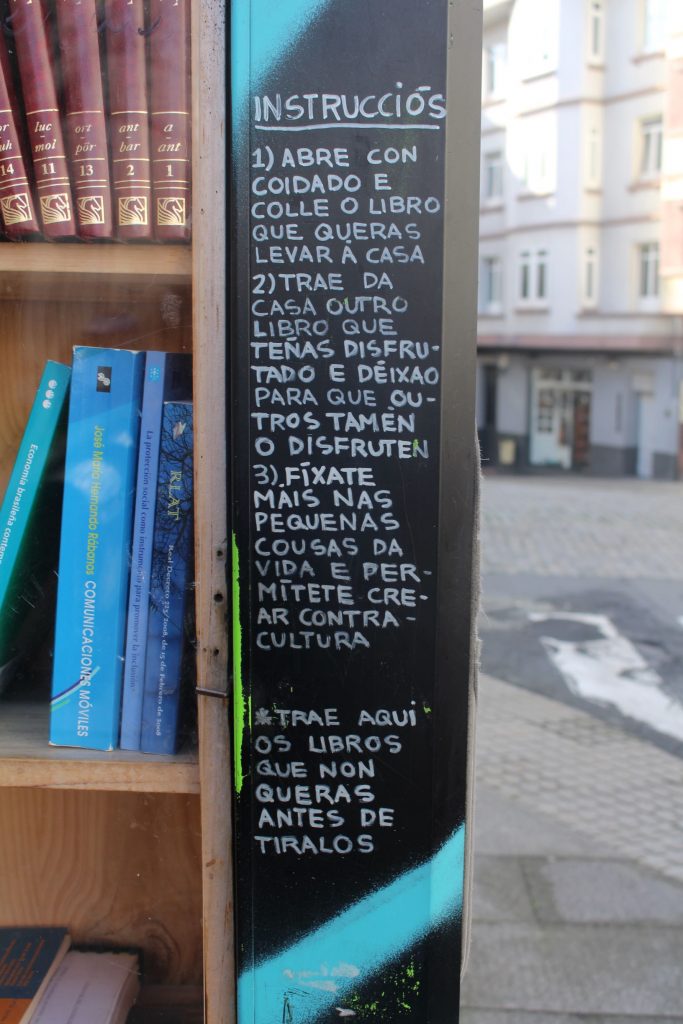 or
uh
14
luc
mol
11
ort
pör
13
ant
bar
2
a
ant
1
Economía brasileña
José María Hernando Rábanos COMUNICACIONES MÓVILES
La protección social como instrumento para promover la inclusión
RLAT Real Decreto 325/2008, de 15 de Febrero de 2008
INSTRUCCIÓS
1) ABRE CON
COIDADO E
COLLE O LIBRO
QUE QUERAS
LEVAR À CASA
2) TRAE DA
CASA OUTRO
LIBRO QUE
TEÑAS DISFRU-
TADO E DÉIXAO
PARA QUE OU-
TROS TAMÉN
O DISFRUTEN
3) FÍXATE
MAIS NAS
PEQUENAS
COUSAS DA
VIDA E PER-
MÍTETE CRE-
AR CONTRA-
CULTURA
*TRAE AQUI
OS LIBROS
QUE NON
QUERAS
ANTES DE
TIRALOS